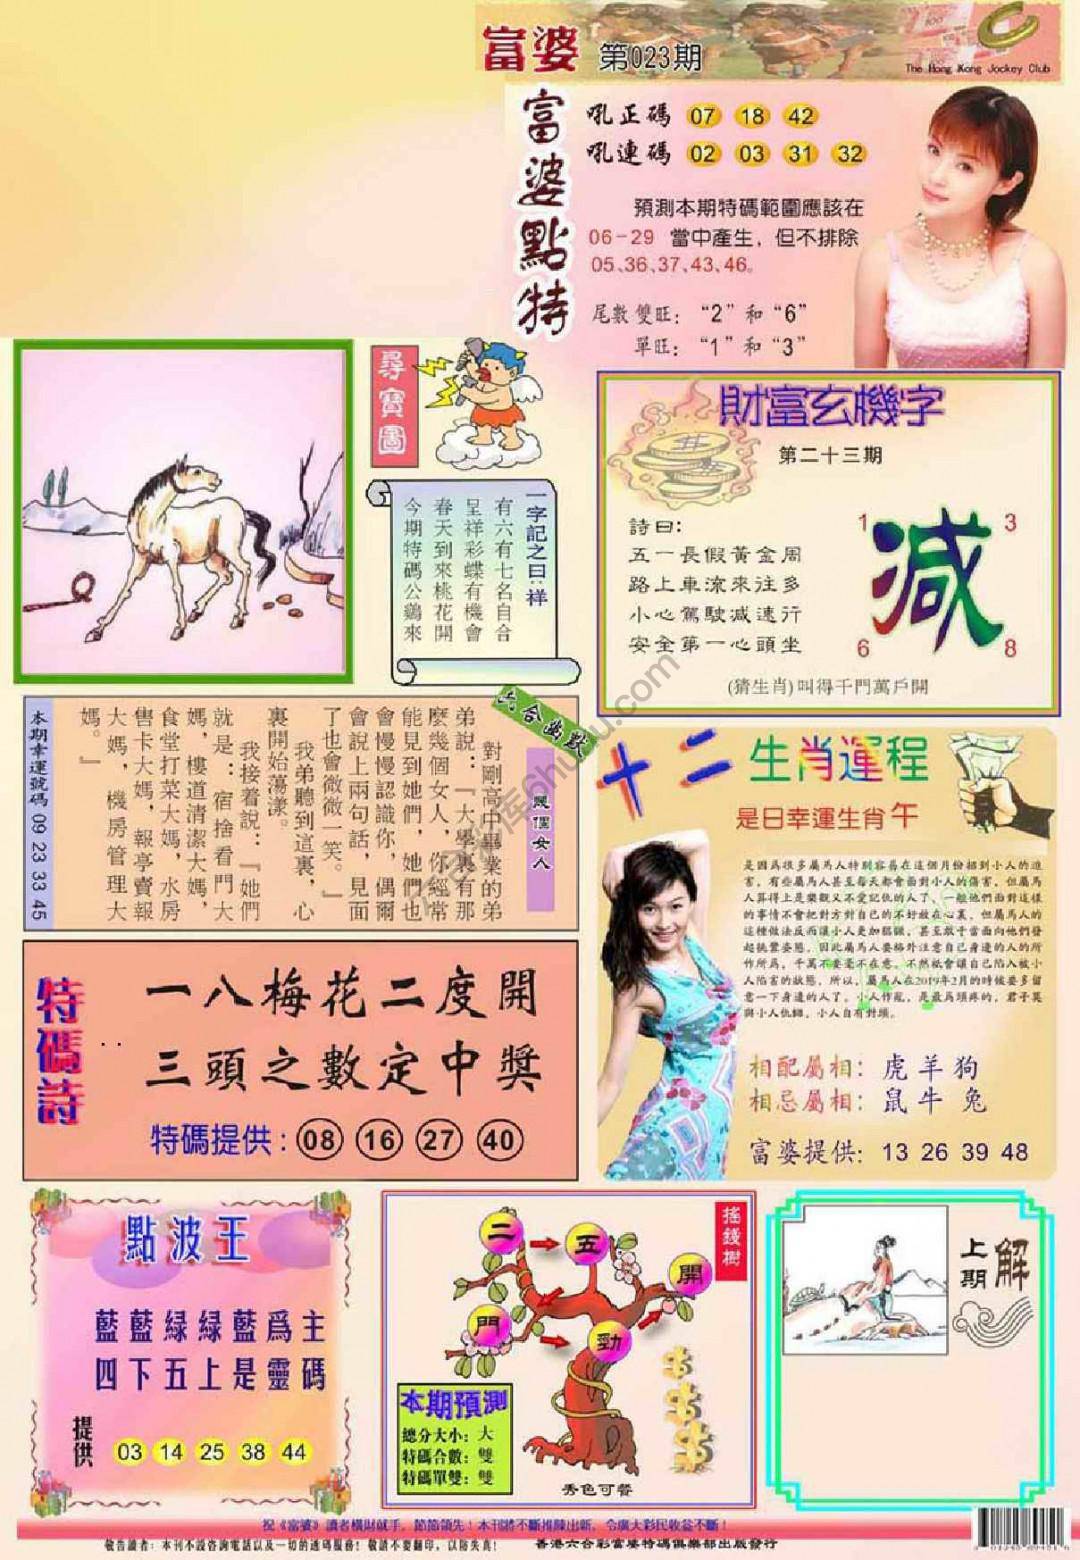 富婆 第023期
The Hong Kong Jockey Club
富婆點特
吼正碼 07 18 42
吼連碼 02 03 31 32
預測本期特碼範圍應該在
06-29 當中產生，但不排除
05、36、37、43、46。
尾數雙旺：“2”和“6”
單旺：“1”和“3”
尋寶圖
一字記之曰：祥
有六有七名自合
呈祥彩蝶有機會
春天到來桃花開
今期特碼公鷄來
財富玄機字
第二十三期
詩曰：
五一長假黃金周
路上車流來往多
小心駕駛減速行
安全第一心頭坐
1 3
減
6 8
(猜生肖)叫得千門萬戶開
六合幽默
幾個女人
對剛高中畢業的弟
弟說：『大學裏有那
麼幾個女人，你經常
能見到她們，她們也
會慢慢認識你，偶爾
會說上兩句話，見面
了也會微微一笑。』
我弟聽到這裏，心
裏開始蕩漾。
我接着說：『她們
就是：宿捨看門大
媽，樓道清潔大媽，
食堂打菜大媽，水房
售卡大媽，報亭賣報
大媽，機房管理大
媽。』
本期幸運號碼 09 23 33 45
十二生肖運程
是日幸運生肖 午
是因爲很多屬馬人特别容易在這個月份招到小人的迫
害，有些屬馬人甚至每天都會面對小人的傷害，但屬馬
人算得上是樂觀又不愛記仇的人了，一般他們面對這樣
的事情不會把對方對自己的不好放在心裏，但屬馬人的
這種做法反而讓小人更加猖獗，甚至敢于當面向他們發
起挑釁姿態，因此屬馬人要格外注意自己身邊的人的所
作所爲，千萬不要毫不在意，不然祇會讓自己陷入被小
人陷害的狀態，所以，屬馬人在2019年2月的時候要多留
意一下身邊的人了，小人作亂，是最爲頭疼的，君子莫
與小人仇讎，小人自有對頭。
相配屬相：虎 羊 狗
相忌屬相：鼠 牛 兔
富婆提供：13 26 39 48
特碼詩
一八梅花二度開
三頭之數定中獎
特碼提供：08 16 27 40
點波王
藍藍緑緑藍爲主
四下五上是靈碼
提供 03 14 25 38 44
搖錢樹
二 五
開
門 勁
本期預測
總分大小：大
特碼合數：雙
特碼單雙：雙
秀色可餐
上期解
祝《富婆》讀者橫財就手，節節領先！本刊將不斷推陳出新，令廣大彩民收益不斷！
敬告讀者：本刊不設咨詢電話以及一切的透碼服務！敬請不要翻印，以防失真！ 香港六合彩富婆特碼俱樂部出版發行